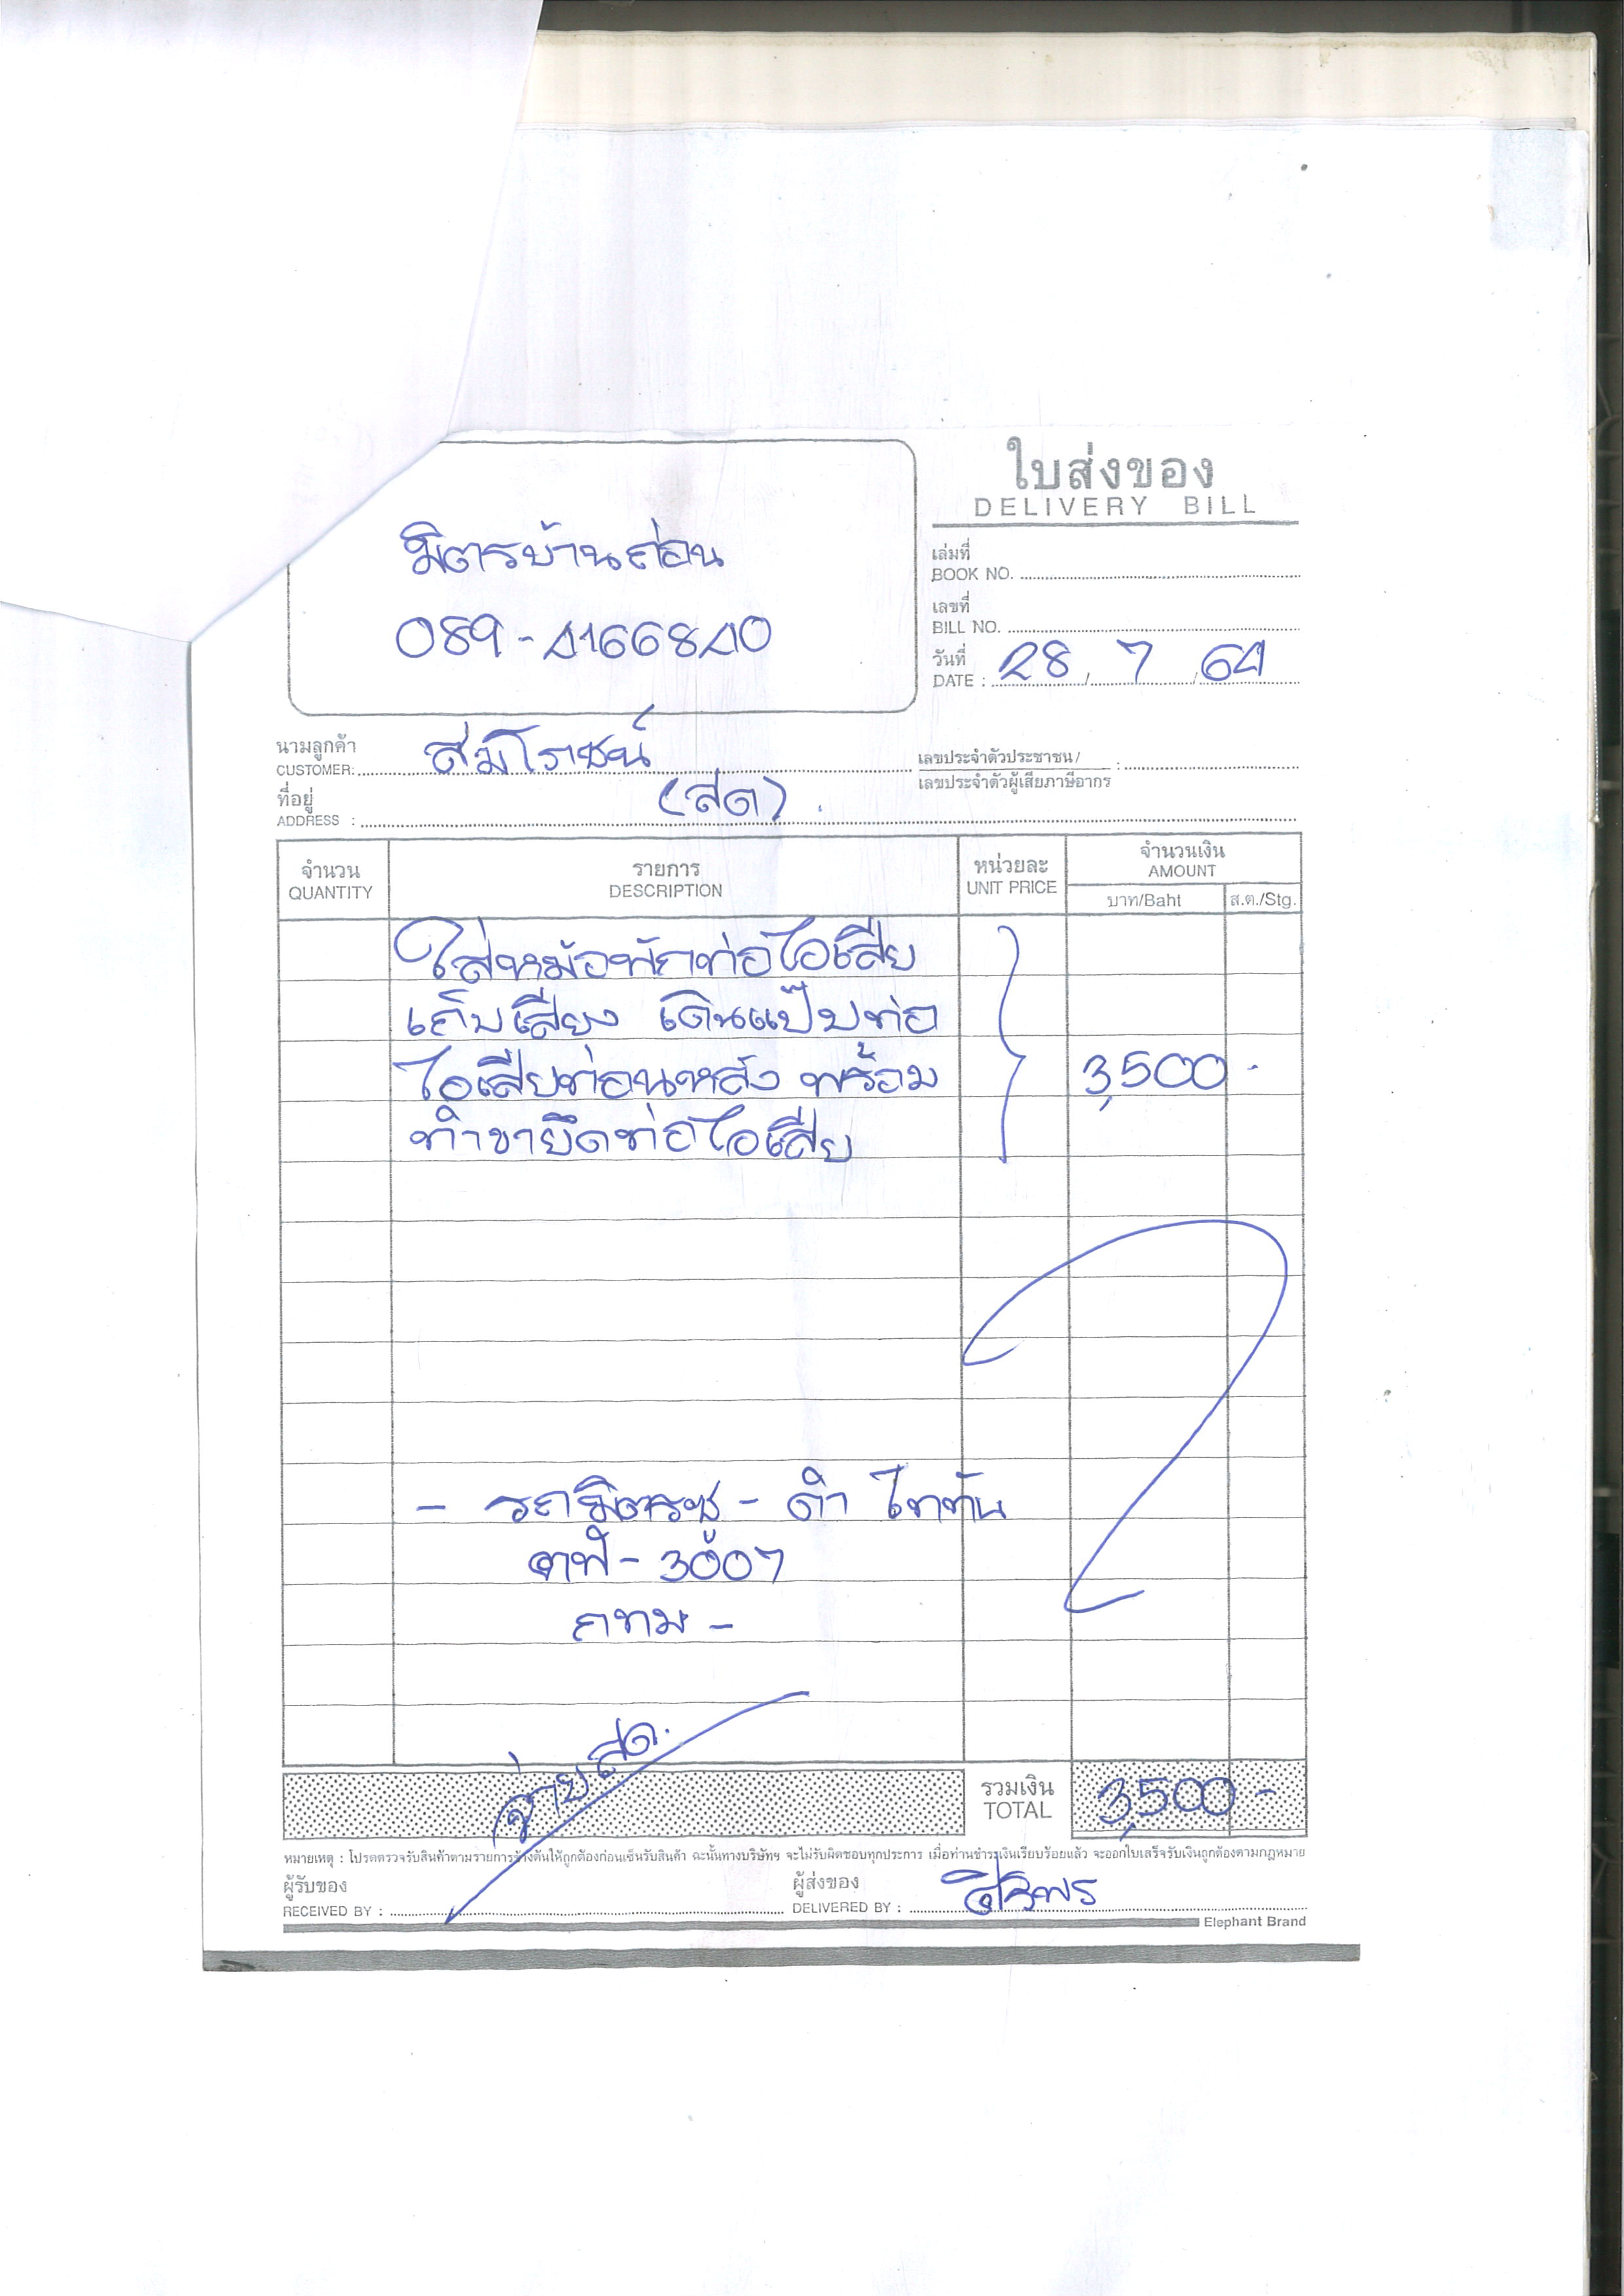 ใบส่งของ
DELIVERY BILL
มิตรบ้านก่อน
089-4166840
เล่มที่
BOOK NO.
เลขที่
BILL NO.
วันที่
DATE : 28 / 7 / 64
นามลูกค้า
CUSTOMER: สมโรชน์
เลขประจำตัวประชาชน/
เลขประจำตัวผู้เสียภาษีอากร :
ที่อยู่
ADDRESS : (สด)
จำนวน รายการ หน่วยละ จำนวนเงิน
QUANTITY DESCRIPTION UNIT PRICE AMOUNT
บาท/Baht ส.ต./Stg.
ใส่หม้อพักท่อไอเสีย
เก็บเสียง เดินแป๊บท่อ
ไอเสียท่อนหลัง พร้อม 3,500 -
ทำขายึดท่อไอเสีย
- รถมิตซู - ดำ ไททัน
3007
กทม -
จ่ายสด.
รวมเงิน
TOTAL 3,500 -
หมายเหตุ : โปรดตรวจรับสินค้าตามรายการข้างต้นให้ถูกต้องก่อนเซ็นรับสินค้า ฉะนั้นทางบริษัทฯ จะไม่รับผิดชอบทุกประการ เมื่อท่านชำระเงินเรียบร้อยแล้ว จะออกใบเสร็จรับเงินถูกต้องตามกฎหมาย
ผู้รับของ
RECEIVED BY :
ผู้ส่งของ
DELIVERED BY : ศิริพร
Elephant Brand